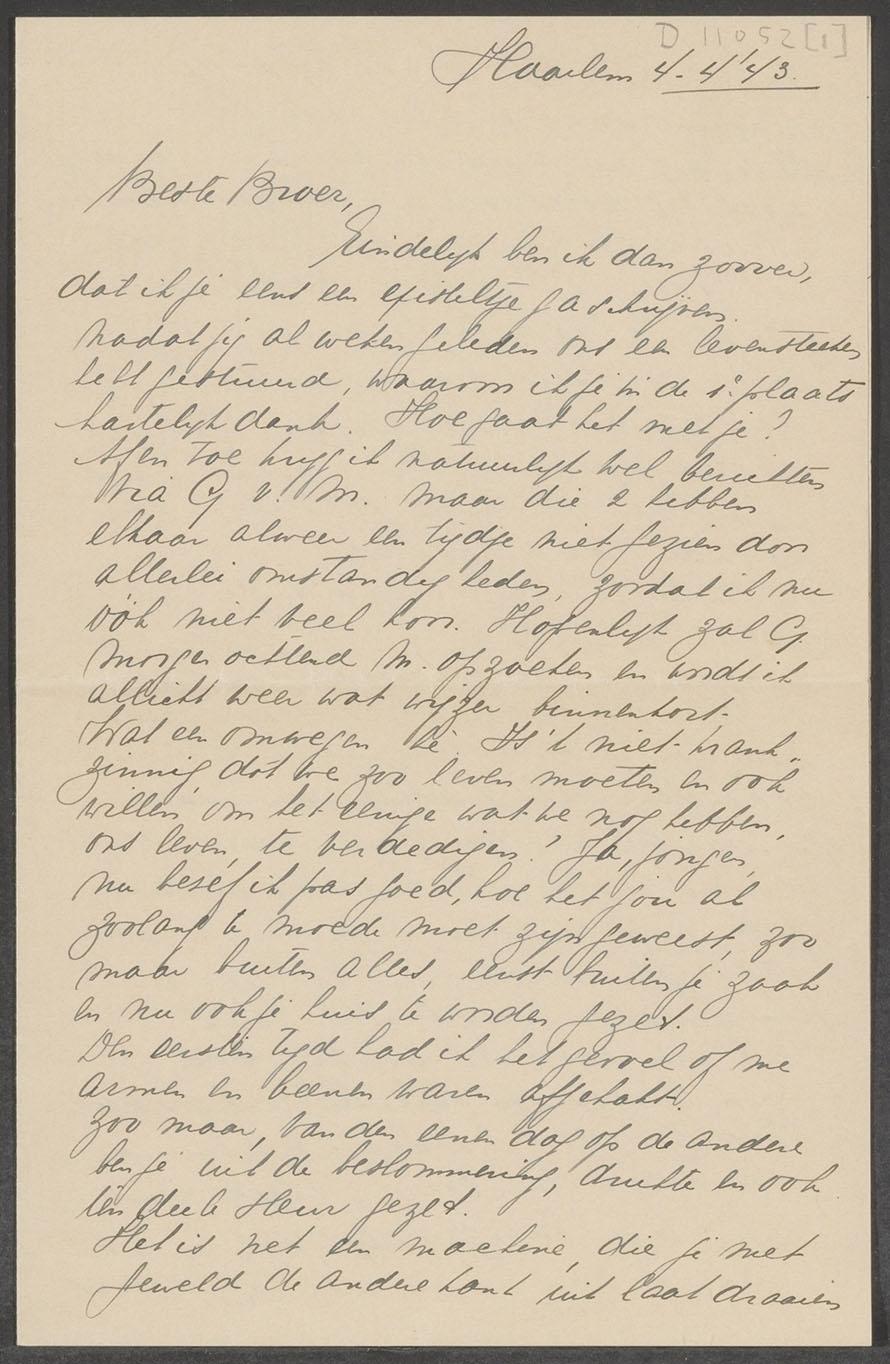 D 11052 [1]
Haarlem 4-4'43.
Beste Broer,
Eindelijk ben ik dan zoover,
dat ik je eens een episteltje ga schrijven.
Nadat jij al weken geleden ons een levensteeken
hebt gestuurd, waarom ik je in de 1e plaats
hartelijk dank. Hoe gaat het met je?
Af en toe krijg ik natuurlijk wel berichten
via G v. M. maar die 2 hebben
elkaar alweer een tijdje niet gezien door
allerlei omstandigheden, zoodat ik nu
óók niet veel hoor. Hopenlijk zal G.
morgen ochtend M. opzoeken en wordt ik
allicht weer wat wijzer binnenkort.
Wat een omwegen hè. Is 't niet krank-
zinnig, dat we zoo leven moeten en ook
willen om het eenige wat we nog hebben,
ons leven, te verdedigen? Ja, jongen,
nu besef ik pas goed, hoe het jou al
zoolang te moede moet zijn geweest, zoo
maar buiten alles, eerst buiten je zaak
en nu ook je huis te worden gezet.
Den eersten tijd had ik het gevoel of me
armen en beenen waren afgehakt.
Zoo maar, van den eenen dag op de andere
ben je uit de beslommering, drukte en ook
ten deele sleur gezet.
Het is net een machine, die je met
geweld de andere kant uit laat draaien